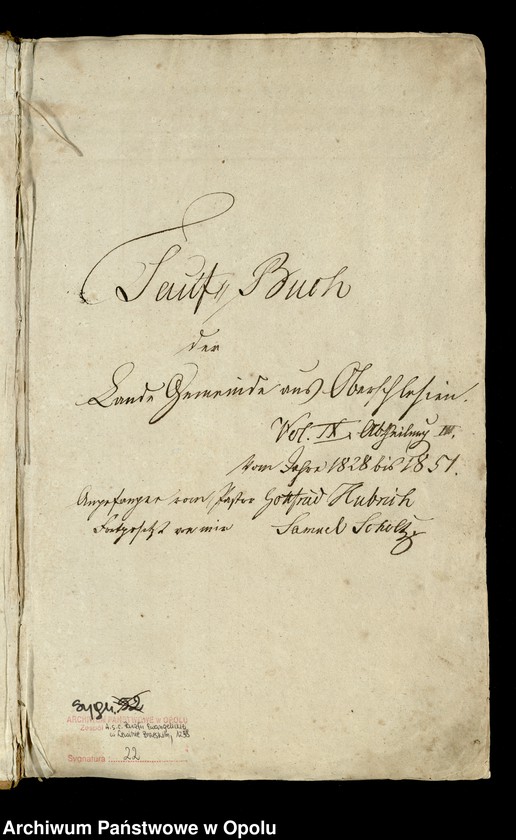 Tauf Buch
der
Land Gemeinde aus Oberschlesien.
Vol. IX. Abtheilung III.
Vom Jahre 1828 bis 1851.
Angefangen vom Pastor Gottfried Hubrich
Fortgesetzt von mir Samuel Scholtz
sygn. 52
ARCHIWUM PAŃSTWOWE w OPOLU
Zespół
Sygnatura: 22
Archiwum Państwowe w Opolu